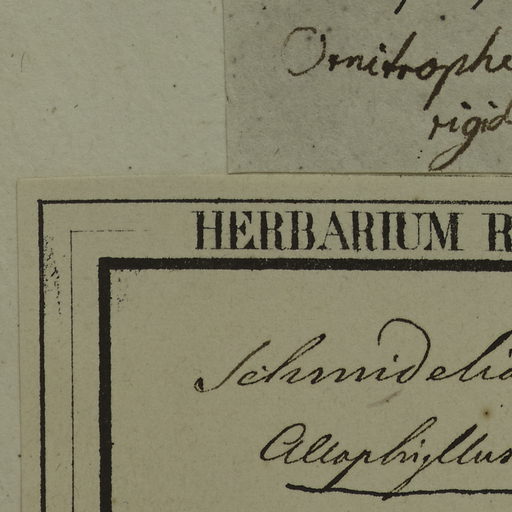 Ornitrophe
rigid
HERBARIUM R
Schmidelia
Allophyllus